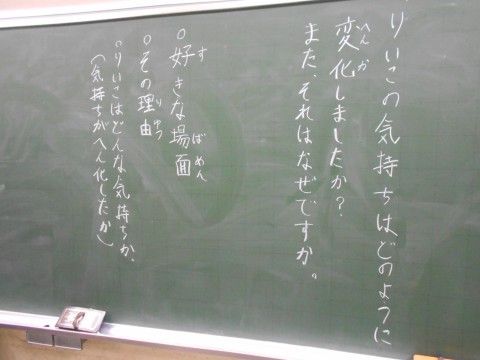 りいこの気持ちはどのように
変化しましたか?
また、それはなぜですか。
○好きな場面
○その理由
○りいこはどんな気持ちか。
(気持ちがへん化したか)
へんか
す
ばめん
りゆう